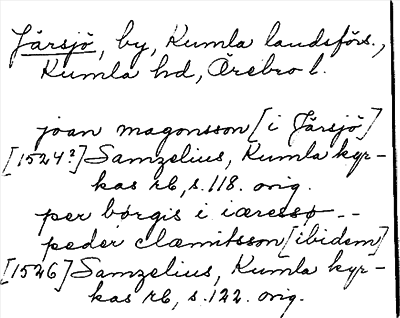 Järsjö, by, Kumla landsförs.,
Kumla hd, Örebro l.
joan magonsson [i Järsjö]
[1524?] Samzelius, Kumla kyr-
kas rb, s. 118. orig.
per børgis i iæressø --
peder clæmitsson [ibidem]
[1526] Samzelius, Kumla kyr-
kas rb, s. 122. orig.